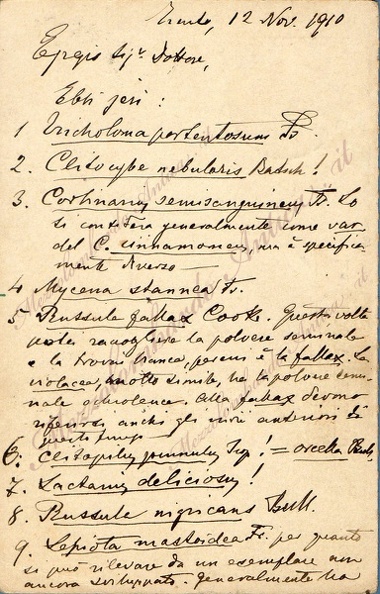 Trento, 12 Nov. 1910
Egregio Sigr Dottore,
Ebbi jeri:
1 Tricholoma portentosum Fr.
2. Clitocybe nebularis Batsch!
3. Cortinarius semisanguineus Fr. Lo
si considera generalmente come var.
del C. cinnamomeus, ma è specifica-
mente diverso —
4 Mycena stannea Fr.
5 Russula fallax Cooke. Questa volta
potei raccogliere la polvere seminale
e la trovai bianca, perciò è la fallax. La
violacea, molto simile, ha la polvere semi-
nale ochroleuca. Alla fallax devono
riferirsi anche gli invii anteriori di
questo fungo
6. Clitopilus prunulus Scop! = orcella Bull.
7. Lactarius deliciosus!
8 Russula nigricans Bull.
9. Lepiota mastoidea Fr. per quanto
si può rilevare da un esemplare non
ancora sviluppato. Generalmente ha